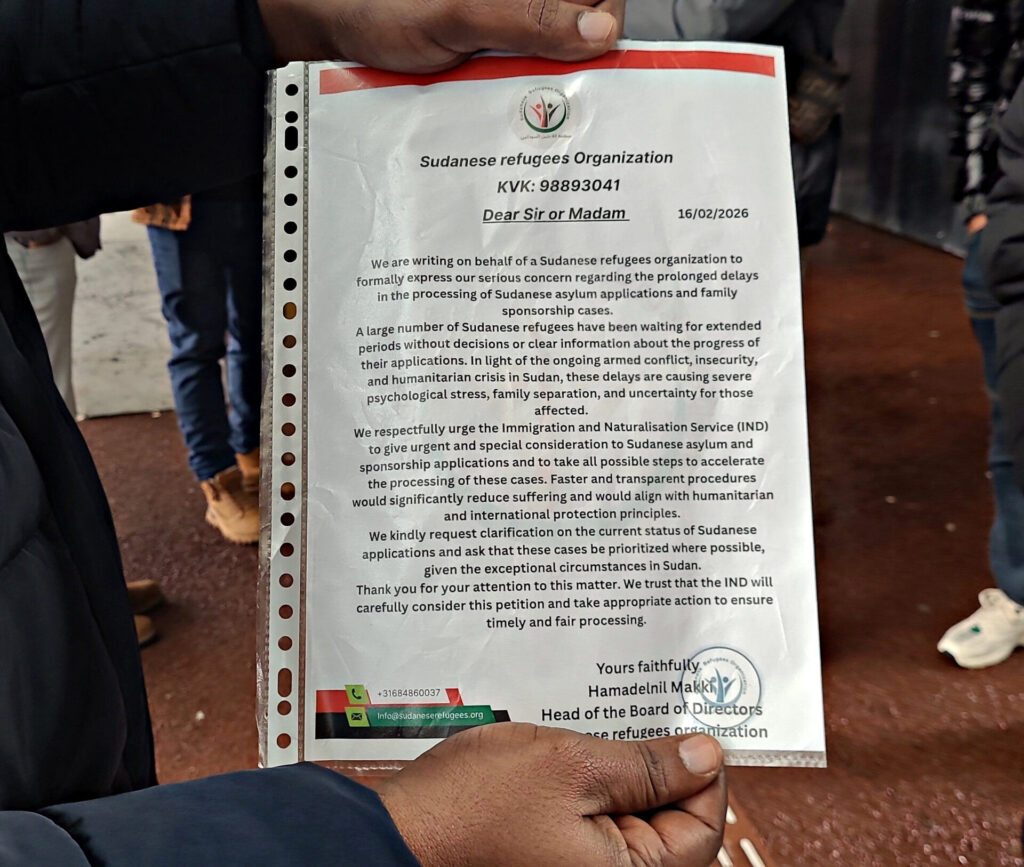 Sudanese refugees Organization
KVK: 98893041
Dear Sir or Madam 16/02/2026
We are writing on behalf of a Sudanese refugees organization to
formally express our serious concern regarding the prolonged delays
in the processing of Sudanese asylum applications and family
sponsorship cases.
A large number of Sudanese refugees have been waiting for extended
periods without decisions or clear information about the progress of
their applications. In light of the ongoing armed conflict, insecurity,
and humanitarian crisis in Sudan, these delays are causing severe
psychological stress, family separation, and uncertainty for those
affected.
We respectfully urge the Immigration and Naturalisation Service (IND)
to give urgent and special consideration to Sudanese asylum and
sponsorship applications and to take all possible steps to accelerate
the processing of these cases. Faster and transparent procedures
would significantly reduce suffering and would align with humanitarian
and international protection principles.
We kindly request clarification on the current status of Sudanese
applications and ask that these cases be prioritized where possible,
given the exceptional circumstances in Sudan.
Thank you for your attention to this matter. We trust that the IND will
carefully consider this petition and take appropriate action to ensure
timely and fair processing.
Yours faithfully
Hamadelnil Makki
Head of the Board of Directors
refugees organization
+31684860037
Info@sudaneserefugees.org